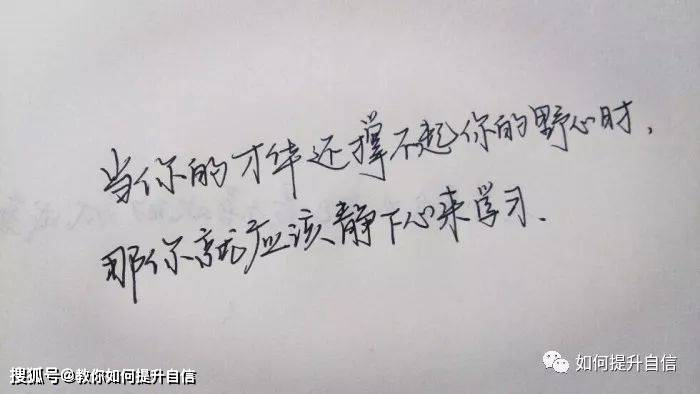 当你的才华还撑不起你的野心时,
那你就应该静下心来学习.
搜狐号@教你如何提升自信
如何提升自信